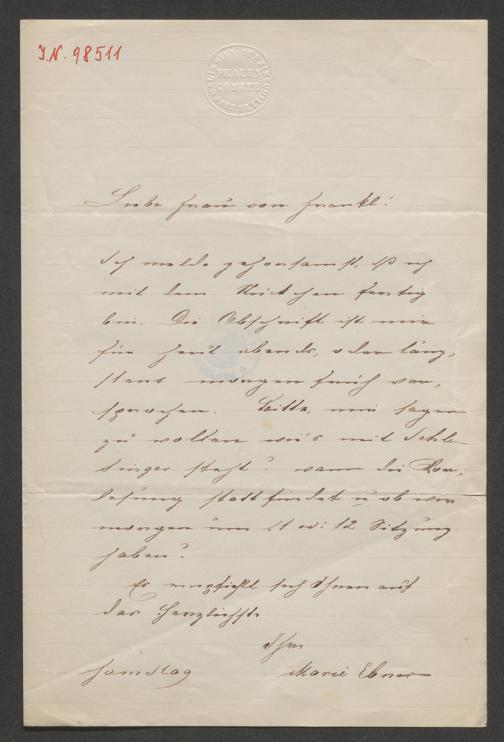 I.N. 98511
FRAUEN
COMITÉ
Liebe Frau von Frankl!
Ich melde gehorsamst, dß ich
mit dem Stückchen fertig
bin. Die Abschrift ist mir
für heut abends, oder läng,
stens morgen früh ver,
sprochen. Bitte, mir sagen
zu wollen wie's mit Schle
singer steht? wann die Vor,
lesung stattfindet u ob wir
morgen um 11 od: 12 Sitzung
haben?
Es empfiehlt sich Ihnen auf
das Herzlichste
Ihre
Samstag Marie Ebner